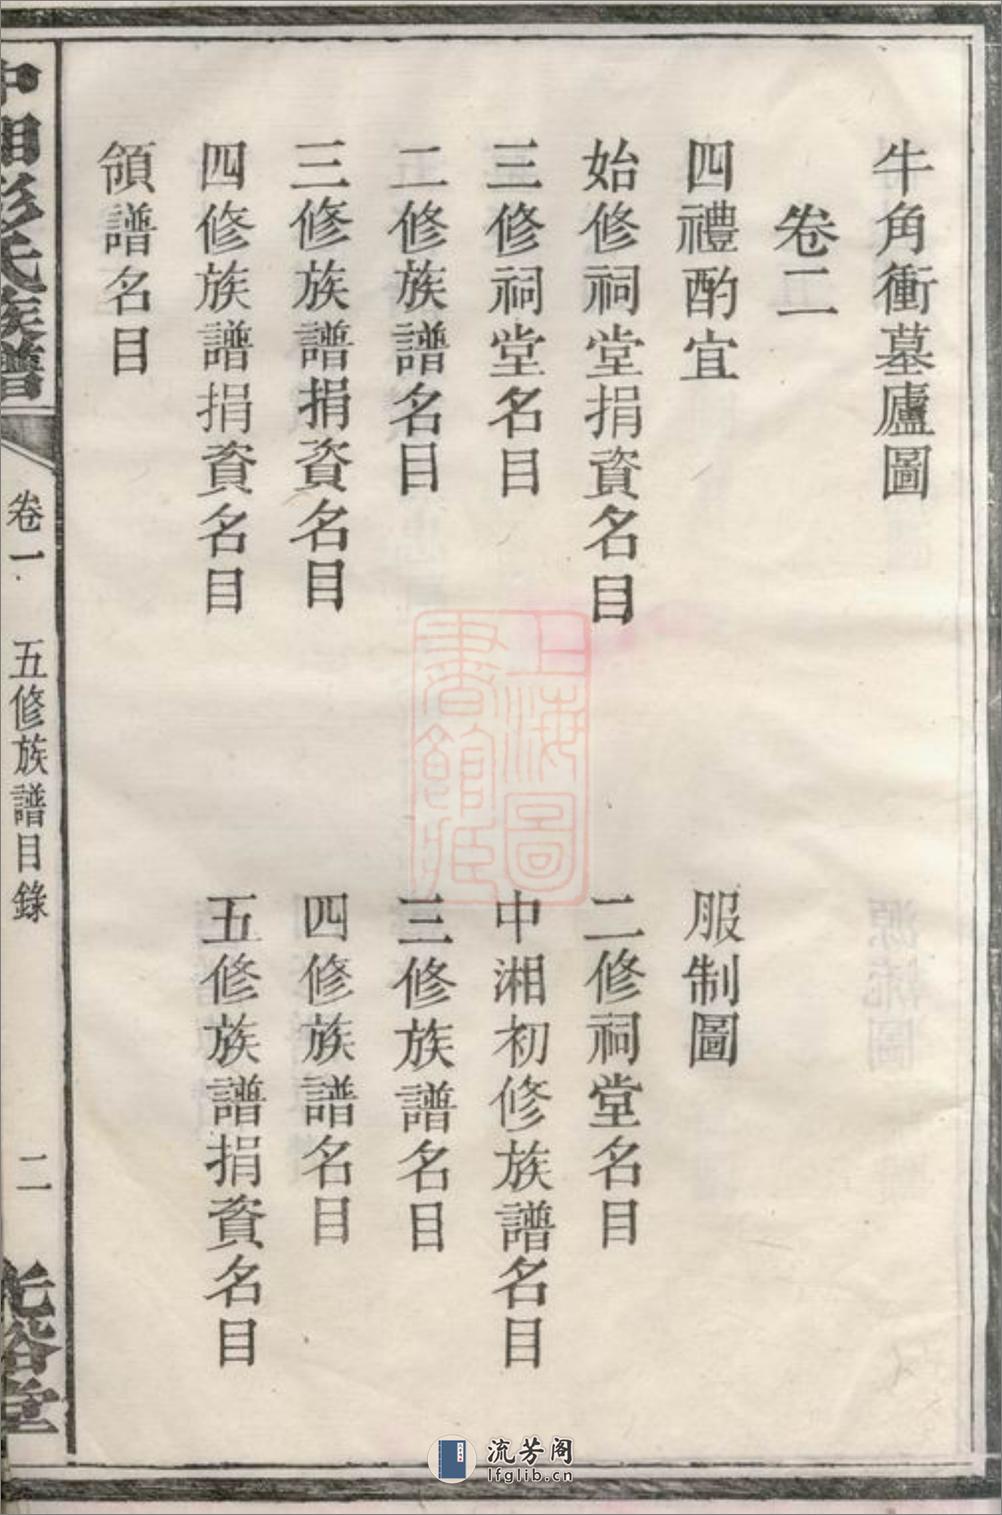 牛角衝墓廬圖
卷二
四禮酌宜 服制圖
始修祠堂捐資名目 二修祠堂名目
三修祠堂名目 中湘初修族譜名目
二修族譜名目 三修族譜名目
三修族譜捐資名目 四修族譜名目
四修族譜捐資名目 五修族譜捐資名目
領譜名目
中湘彭氏族譜
卷一 五修族譜目錄 二
光裕堂
上海圖書館藏
流芳阁
lfglib.cn